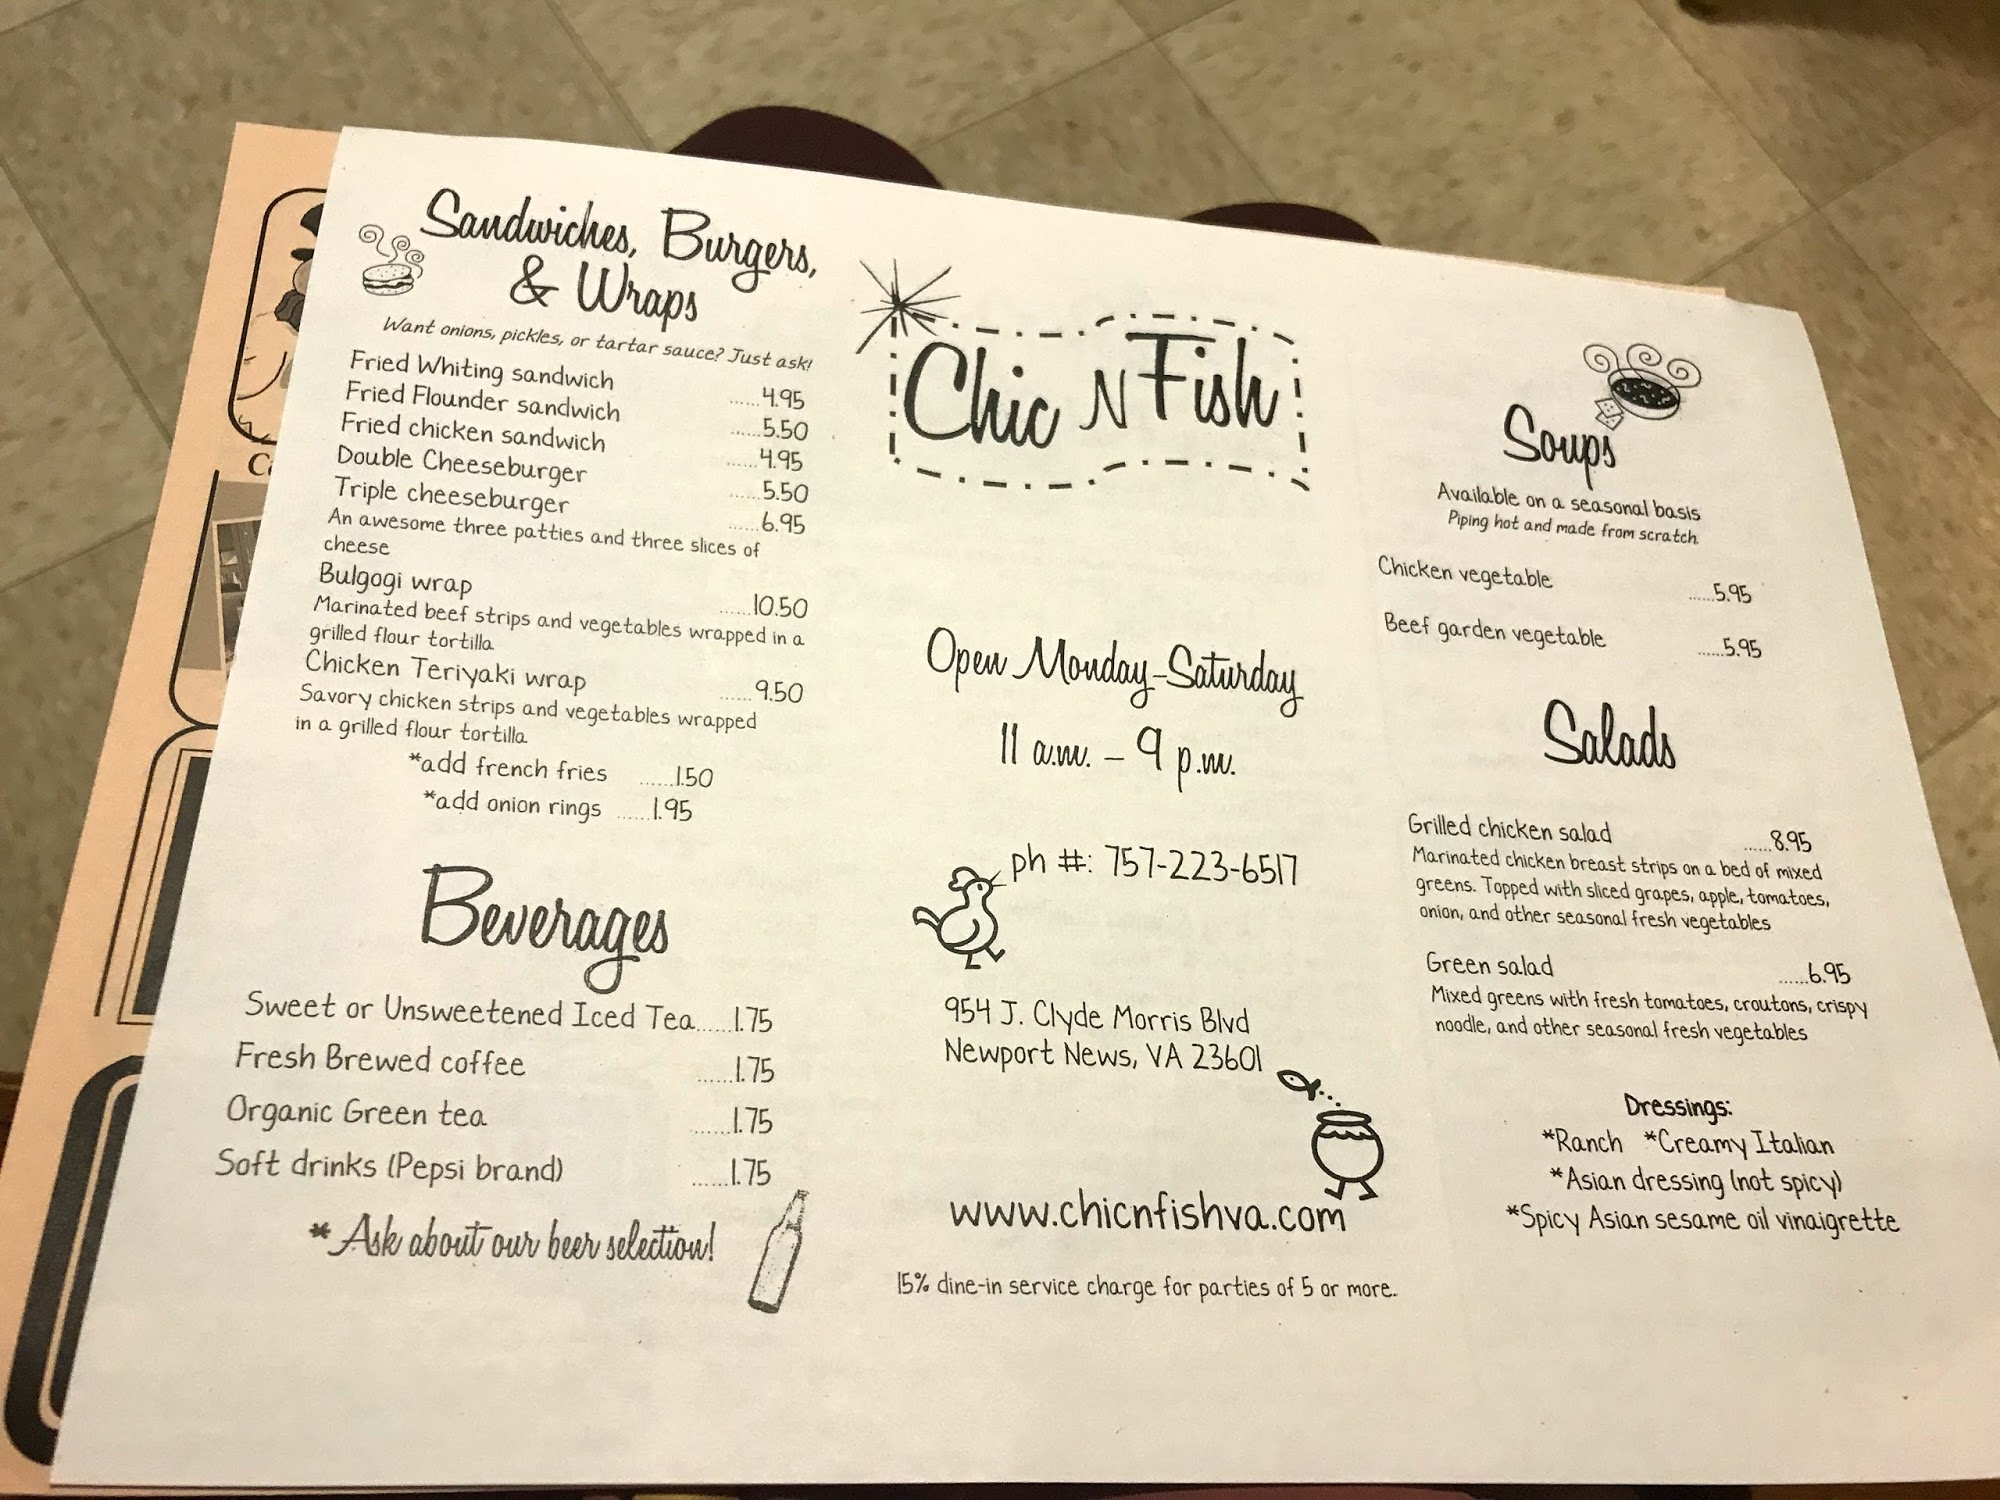 Sandwiches, Burgers,
& Wraps
Want onions, pickles, or tartar sauce? Just ask!
Fried Whiting sandwich ......4.95
Fried Flounder sandwich ......5.50
Fried chicken sandwich ......4.95
Double Cheeseburger ......5.50
Triple cheeseburger ......6.95
An awesome three patties and three slices of
cheese
Bulgogi wrap ......10.50
Marinated beef strips and vegetables wrapped in a
grilled flour tortilla
Chicken Teriyaki wrap ......9.50
Savory chicken strips and vegetables wrapped
in a grilled flour tortilla
*add french fries ......1.50
*add onion rings ......1.95
Beverages
Sweet or Unsweetened Iced Tea......1.75
Fresh Brewed coffee ......1.75
Organic Green tea ......1.75
Soft drinks (Pepsi brand) ......1.75
*Ask about our beer selection!
Chic N Fish
Open Monday-Saturday
11 a.m. - 9 p.m.
ph #: 757-223-6517
954 J. Clyde Morris Blvd
Newport News, VA 23601
www.chicnfishva.com
15% dine-in service charge for parties of 5 or more.
Soups
Available on a seasonal basis
Piping hot and made from scratch
Chicken vegetable ......5.95
Beef garden vegetable ......5.95
Salads
Grilled chicken salad ......8.95
Marinated chicken breast strips on a bed of mixed
greens. Topped with sliced grapes, apple, tomatoes,
onion, and other seasonal fresh vegetables
Green salad ......6.95
Mixed greens with fresh tomatoes, croutons, crispy
noodle, and other seasonal fresh vegetables
Dressings:
*Ranch *Creamy Italian
*Asian dressing (not spicy)
*Spicy Asian sesame oil vinaigrette